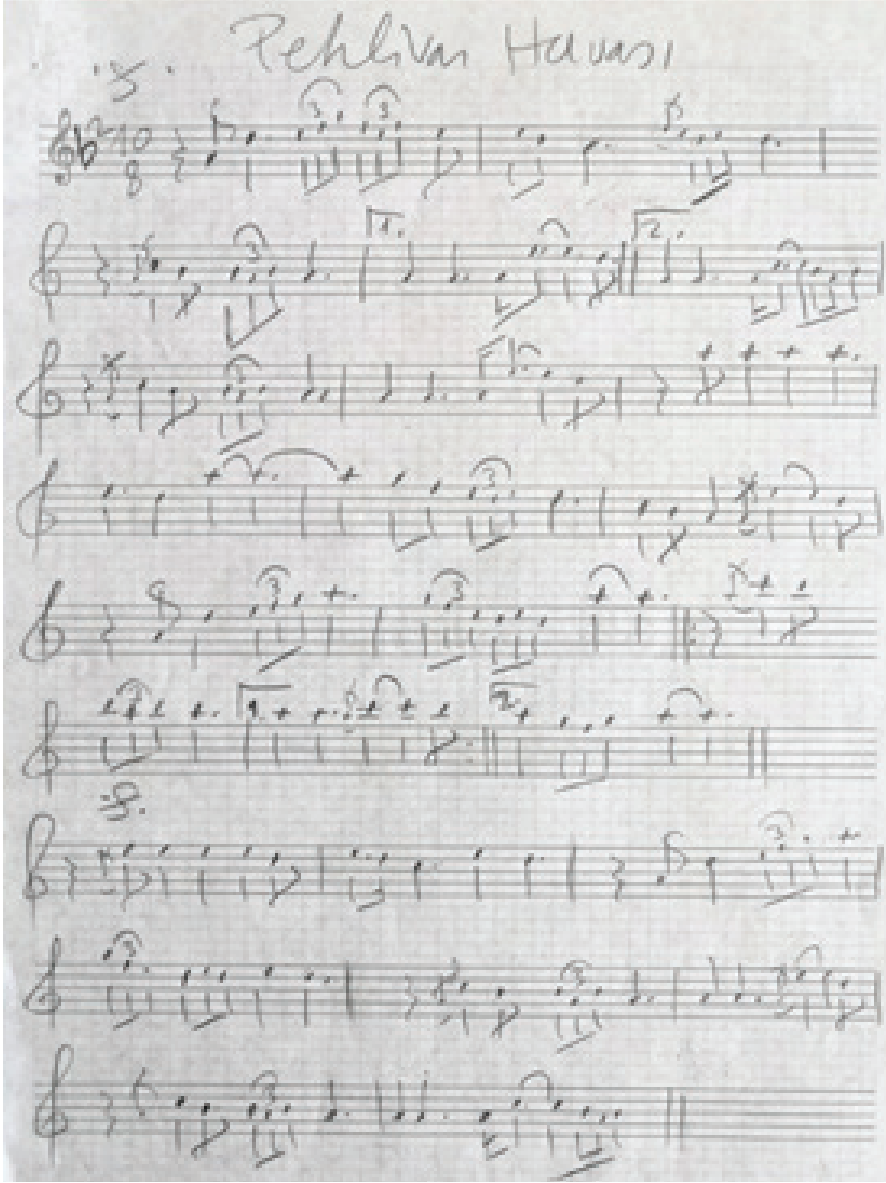 Pehlivan Havası
2 10
8
3 3
3 1. 2.
3
3
3 3
3 1. 2.
3
3 3
3